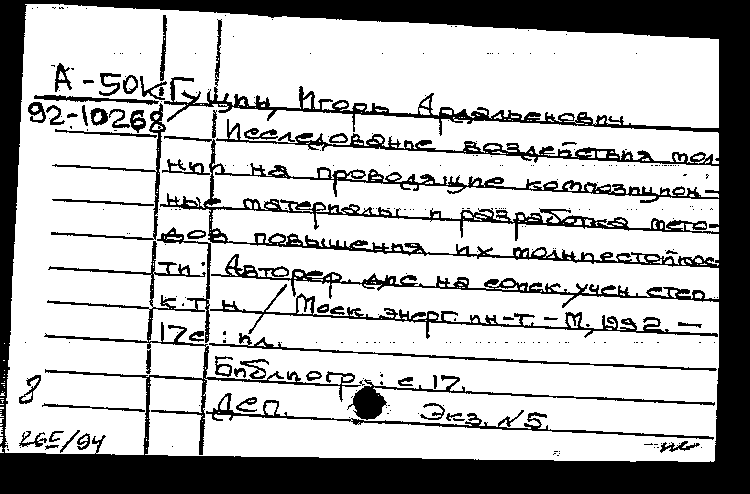 А-50к Гущин, Игорь Ардальенович.
92-10268
Исследование воздействия мол-
нии на проводящие композицион-
ные материалы и разработка мето-
дов повышения их молниестойкос-
ти: Автореф. дис. на соиск. учен. степ.
к.т.н. Моск. энерг. ин-т. - М., 1992. -
17с: ил.
Библиогр.: с. 17.
8 Деп. Экз. N5.
265/94